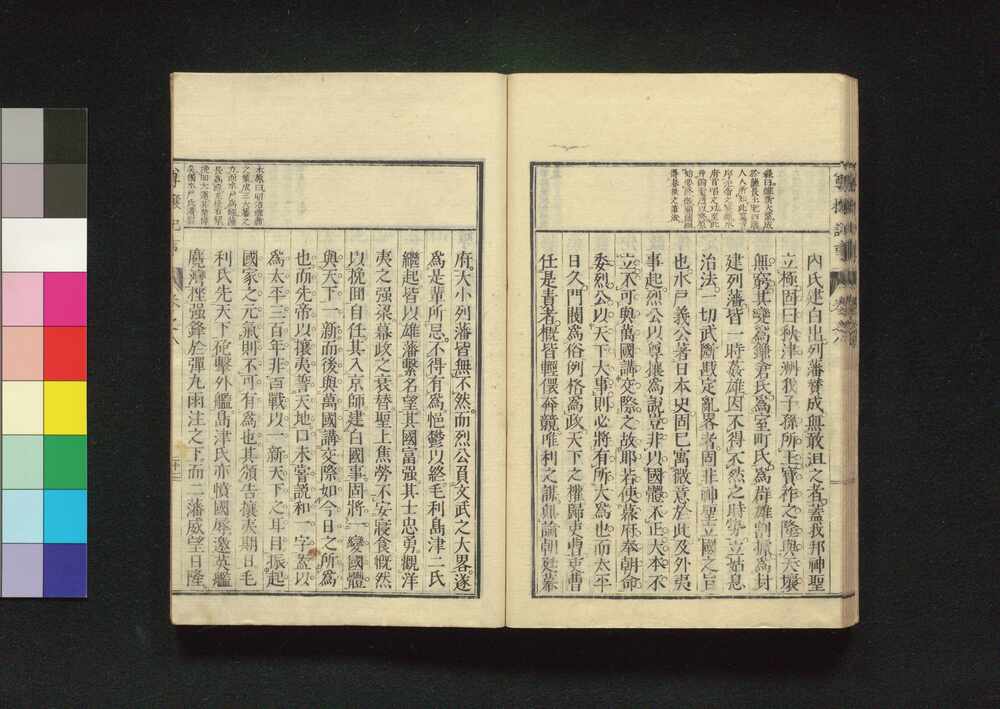 內氏建白出列藩贊成無敢沮之者蓋我邦神聖
立極固曰秋津洲我子孫所王寶祚之隆與天壤
無窮其變爲鎌倉氏爲室町氏爲群雄割據爲封
建列藩皆一時姦雄因不得不然之時勢立姑息
治法一切武斷戡定亂畧者固非神聖立國之旨
也水戶義公著日本史固已寓微意於此及外夷
事起烈公以尊攘爲說豈非以國體不正大本不
立不可與萬國講交際之故耶若使幕府奉朝命
委烈公以天下大事則必將有所大爲也而太平
日久門閥爲俗例格爲政天下之權歸吏曹吏曹
任是責者概皆輕儇奔競唯利之謀無論朝廷幕
府大小列藩皆無不然而烈公負文武之大畧遂
爲是輩所忌不得有爲悒鬱以終毛利島津二氏
繼起皆以雄藩繫名望其國富强其士忠勇觀洋
夷之强梁幕政之衰替聖上焦勞不安寢食慨然
以挽回自任其入京師建白國事固將一變國體
與天下一新而後與萬國講交際如今日之所爲
也而先帝以攘夷等天地口未嘗說和一字蓋以
爲太平三百年非百戰以一新天下之耳目振起
國家之元氣則不可有爲也其頒告攘夷期日毛
利氏先天下砲擊外艦島津氏亦憤國辱邀英艦
鏖灣挫强鋒於彈丸雨注之下而二藩威望日隆